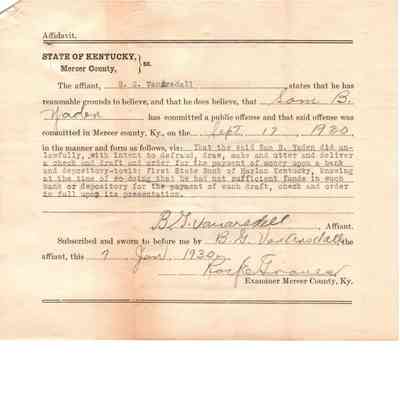 Affidavit.
STATE OF KENTUCKY, } ss.
Mercer County,
The affiant, Vanarsdall , states that he has
reasonable grounds to believe, and that he does believe, that Sam B.
Yaden has committed a public offense and that said offense was
committed in Mercer county, Ky., on the Sept. 17, 1930
in the manner and form as follows, viz: That the said Sam B. Yaden did un-
lawfully, with intent to defraud, draw, make and utter and deliver
a check and draft and order for the payment of money upon a bank
and depository-towit: First State Bank of Harlan Kentucky, knowing
at the time of so doing that he had not sufficient funds in such
bank or depository for the payment of such draft, check and order
in full upon its presentation.
B.G. Vanarsdall, Affiant.
Subscribed and sworn to before me by B. G. VanArsdall the
affiant, this 7 Jan, 1930
Examiner Mercer County, Ky.